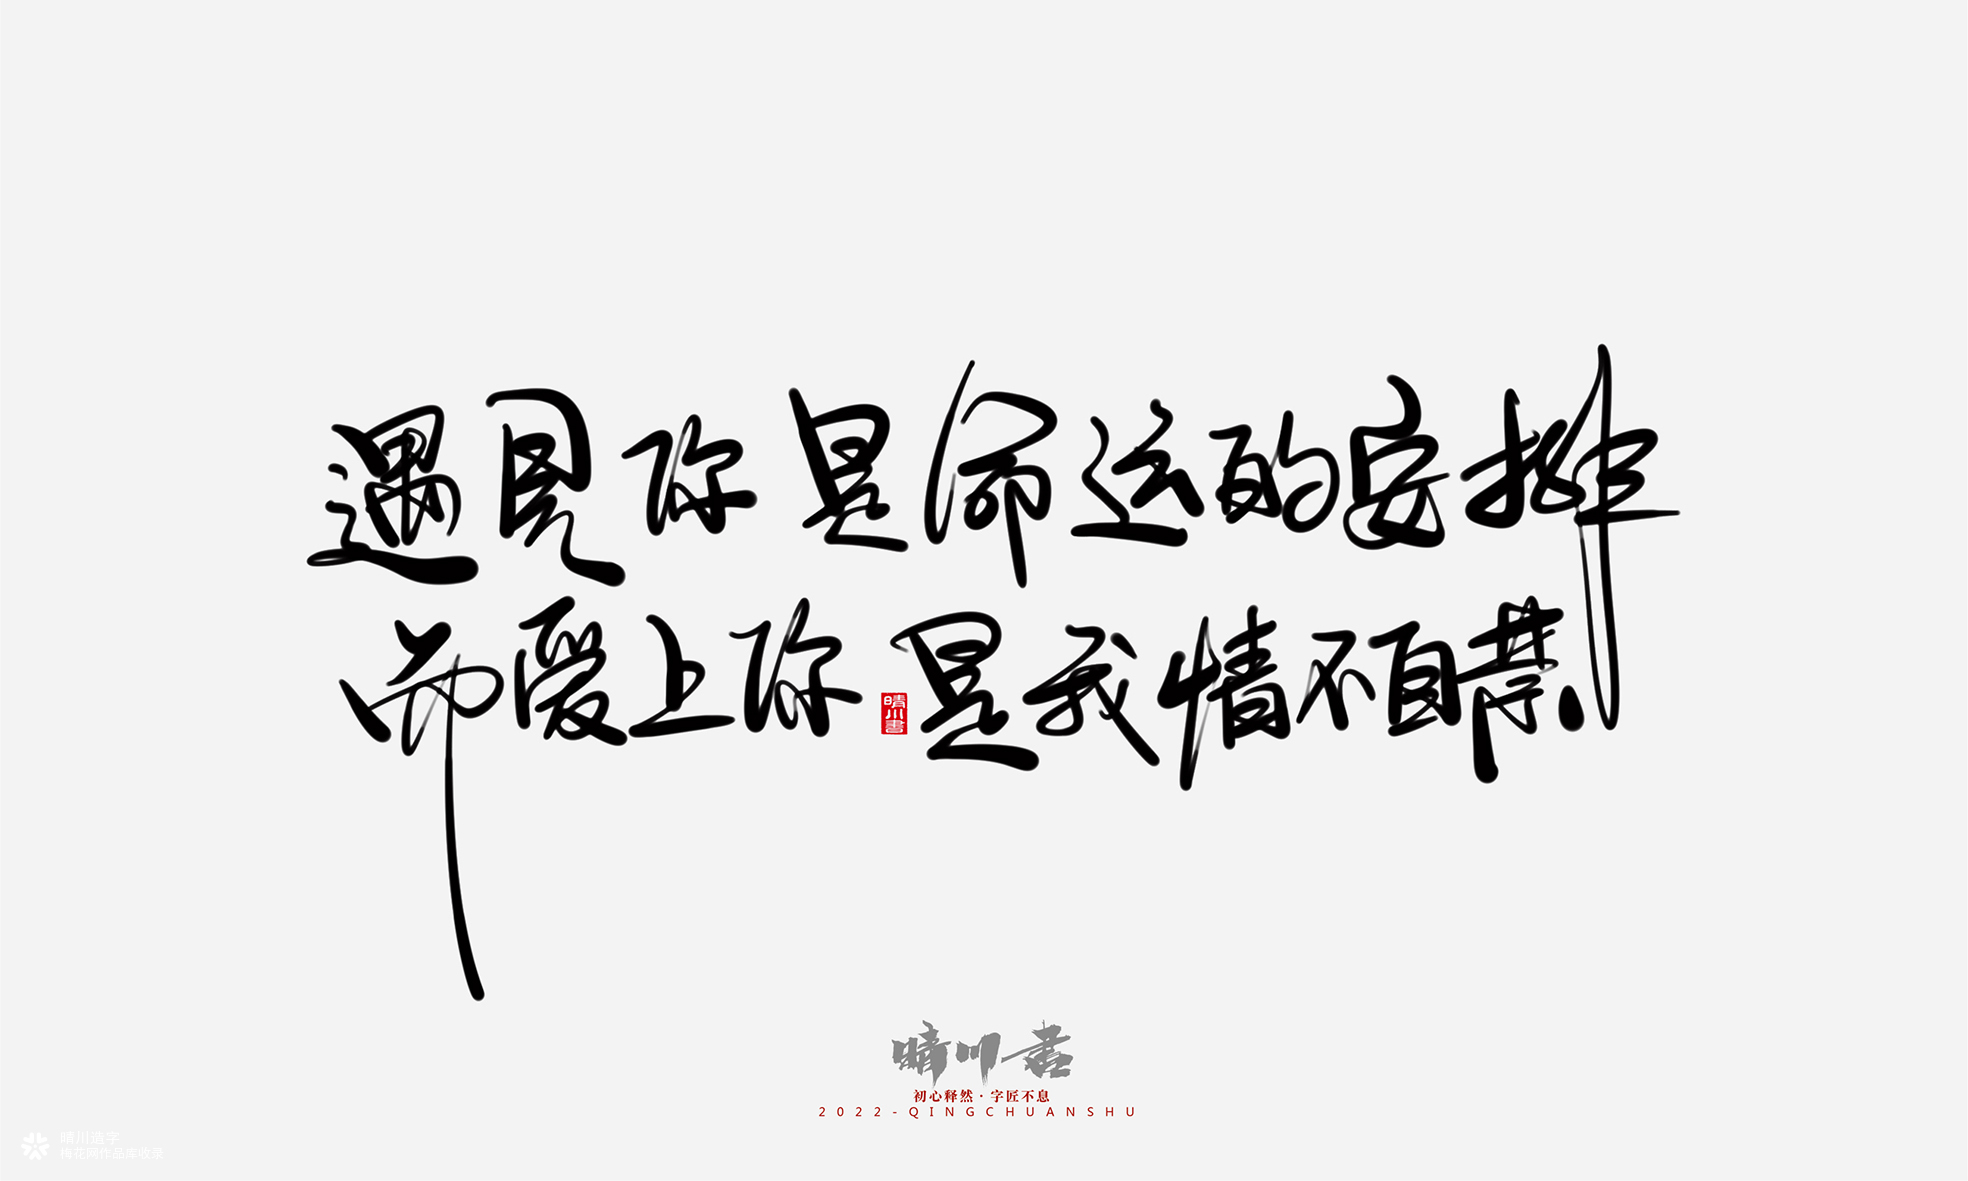 遇见你是命运的安排
而爱上你是我情不自禁
晴川書
晴川书
初心释然·字匠不息
2022-QINGCHUANSHU
晴川造字
梅花网作品库收录